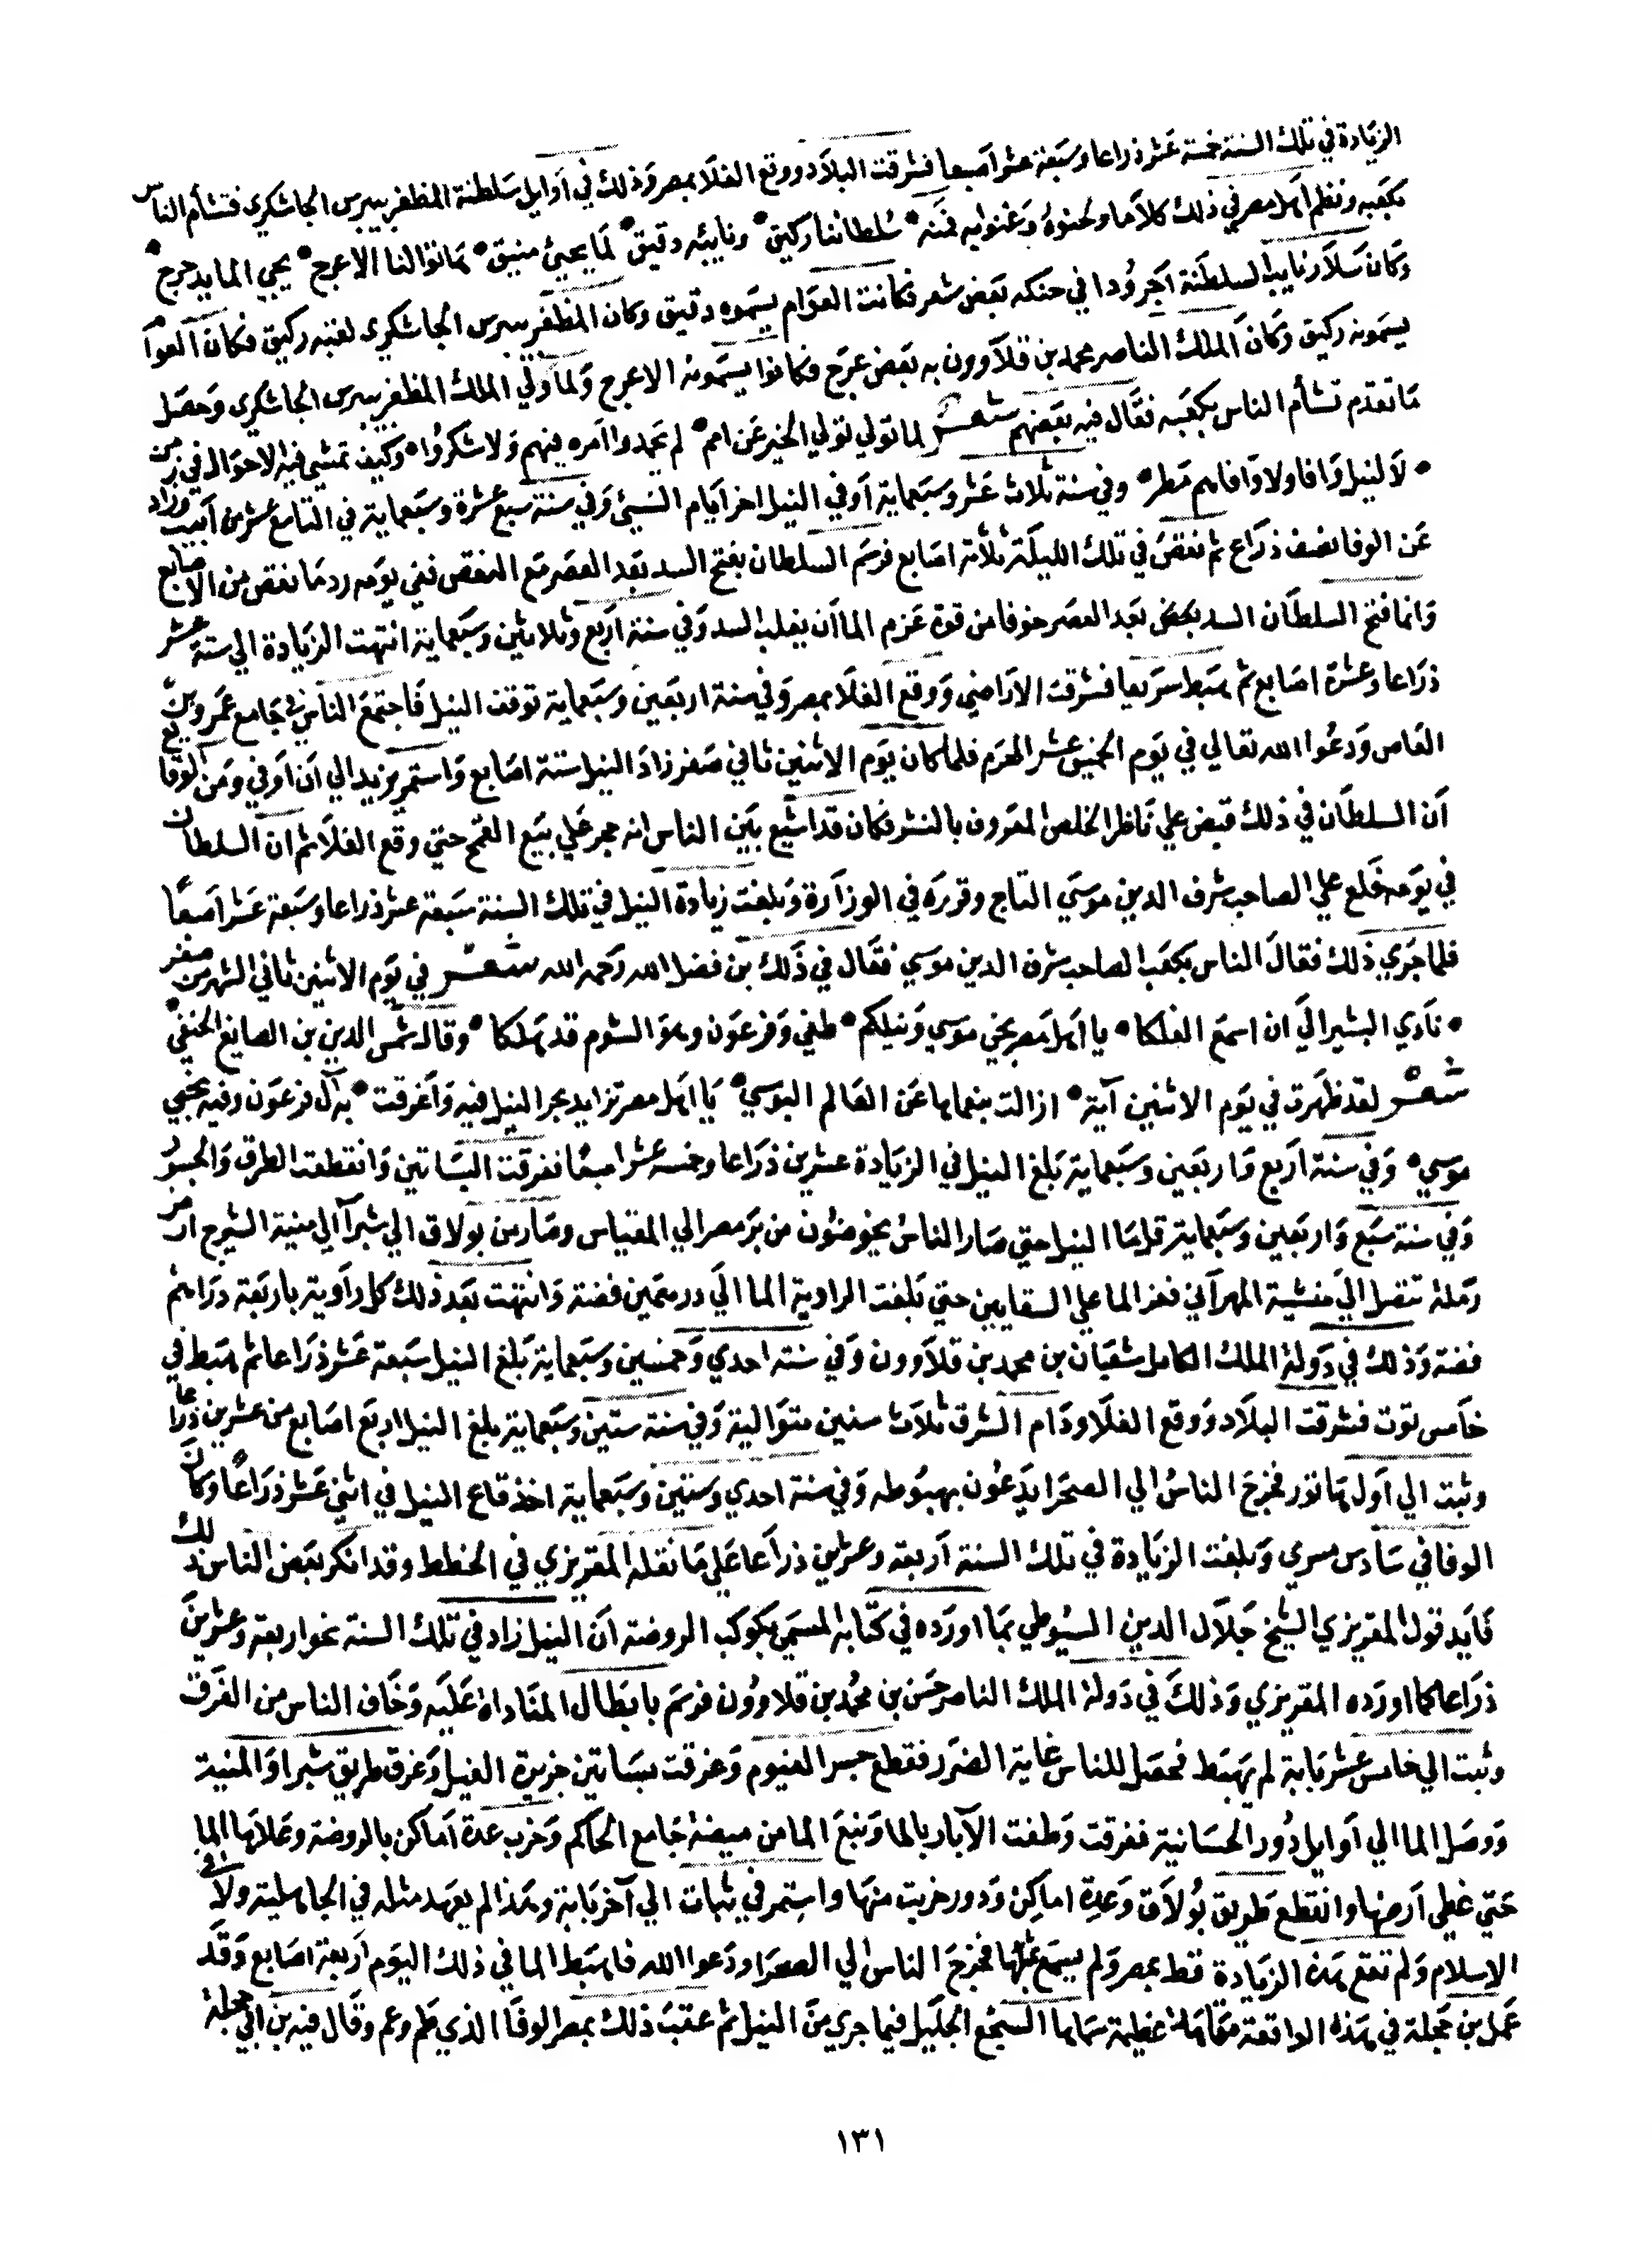 الزيادة في تلك السنة خمسة عشر ذراعا وسبعة عشر اصبعا فشرقت البلاد ووقع الغلا بمصر وذلك في اوايل سلطنة المظفر بيبرس الجاشنكري فتشأم الناس
بكعبه ونظم اهل مصر في ذلك كلاما ولحنوه وغنوا به فمنه • سلطاننا ركيق • ونايبه دقيق • لما يجيئ منيق • هاتوا لنا الاعرج • يجي الما يدحرج •
وكان سلار نايب السلطنة اجرودا في حنكه بعض شعر فكانت العوام يسموه دقيق وكان المظفر بيبرس الجاشنكري لقبه ركيق فكان العوام
يسمونه ركيق وكان الملك الناصر محمد بن قلاوون به بعض عرج فكانوا يسمونه الاعرج ولما ولي الملك المظفر بيبرس الجاشنكري وحصل
ما تقدم تشأم الناس بكعبه فقال فيه بعضهم شعر لما تولي تولي الخير عن امم • لم يحمدوا امره فيهم ولا شكروا • وكيف تمشي فيه الاحوال في زمن
• لا النيل وافا ولا وافاهم مطر • وفي سنة ثلاث عشر وسبعماية اوفي النيل اخر ايام النسيئ وفي سنة سبع عشرة وسبعماية في التاسع عشر من ابيب وزاد
عن الوفا نصف ذراع ثم نقص في تلك الليلة ثلاثة اصابع فرسم السلطان بفتح السد بعد العصر مع النقص ففي يومه رد ما نقص من الاصابع
وانما فتح السلطان السد بعد العصر خوفا من قوة عزم الما ان يغلب السد وفي سنة اربع وثلاثين وسبعماية انتهت الزيادة الي ستة عشر
ذراعا وعشرة اصابع ثم هبط سريعا فشرقت الاراضي ووقع الغلا بمصر وفي سنة اربعين وسبعماية توقف النيل فاجتمع الناس في جامع عمرو بن
العاص ودعوا الله تعالي في يوم الخميس عشر المحرم فلما كان يوم الاثنين ثاني صفر زاد النيل ستة اصابع واستمر يزيد الي ان اوفي ومن الوقايع
ان السلطان في ذلك قبض علي ناظر الخاص المعروف بالنشو فكان قد اشيع بين الناس انه حجر علي بيع القمح حتي وقع الغلا ثم ان السلطان
في يومه خلع علي الصاحب شرف الدين موسي التاج وقرره في الوزارة وبلغت زيادة النيل في تلك السنة سبعة عشر ذراعا وسبعة عشر اصبعا
فلما جري ذلك فقال الناس بكعب الصاحب شرف الدين موسي فقال في ذلك بن فضل الله رحمه الله شعر في يوم الاثنين ثاني الشهر من صفر
• نادي البشير الي ان اسمع الفلكا • يا اهل مصر نجي موسي ونيلكم • طغي وفرعون وهو الشوم قد هلكا • وقال شمس الدين بن الصايغ الحنفي •
شعر لقد ظهرت في يوم الاثنين آية • ازالت بنعماها عن العالم البوسي • يا اهل مصر تزايد بحر النيل فيه واغرقت • به آل فرعون وفيه نجي
موسي • وفي سنة اربع واربعين وسبعماية بلغ النيل في الزيادة عشرين ذراعا وخمسة عشر اصبعا فغرقت البساتين وانقطعت الطرق والجسور
وفي سنة سبع واربعين وسبعماية قل ما النيل حتي صار الناس يخوضون من بر مصر الي المقياس وصار من بولاق الي شبرا الي منية الشيرج ارض
رملة تتصل الي منشية المهراني فغز الما علي السقايين حتي بلغت الراوية الما الي درهمين فضة وانتهت بعد ذلك كل راوية باربعة دراهم
فضة وذلك في دولة الملك الكامل شعبان بن محمد بن قلاوون وفي سنة احدي وخمسين وسبعماية بلغ النيل سبعة عشر ذراعا ثم هبط في
خامس توت فشرقت البلاد ووقع الغلا ودام الشرق ثلاث سنين متوالية وفي سنة ستين وسبعماية بلغ النيل اربع اصابع من عشرين ذراعا
وثبت الي اول هاتور فخرج الناس الي الصحرا يدعون بهبوطه وفي سنة احدي وستين وسبعماية اخذ قاع النيل في اثني عشر ذراعا وكان
الوفا في سادس مسري وبلغت الزيادة في تلك السنة اربعة وعشرين ذراعا علي ما نقله المقريزي في الخطط وقد انكر بعض الناس ذلك
فايد قول المقريزي الشيخ جلال الدين السيوطي بما اورده في كتابه المسمي بكوكب الروضة ان النيل زاد في تلك السنة نحو اربعة وعشرين
ذراعا كما اورده المقريزي وذلك في دولة الملك الناصر حسن بن محمد بن قلاوون فرسم بابطال المناداة عليه وخاف الناس من الغرق
وثبت الي خامس عشر بابة لم يهبط فحصل للناس غاية الضرر فقطع جسر الفيوم وغرقت بساتين جزيرة الفيل وغرق طريق شبرا والمنية
ووصل الما الي اوايل دور الحسانية فغرقت وطفت الآبار بالما ونبع الما من ميضة جامع الحاكم وخرب عدة اماكن بالروضة وعلاها الما
حتي غطي ارضها وانقطع طريق بولاق وعدة اماكن ودور خربت منها واستمر في ثبات الي آخر بابة وهذا لم يعهد مثله في الجاهلية ولا في
الاسلام ولم تقع هذه الزيادة قط بمصر ولم يسمع بمثلها فخرج الناس الي الصحرا ودعوا الله فاهبط الما في ذلك اليوم اربعة اصابع وقد
عمل بن حجلة في هذه الواقعة مقامة عظيمة سماها السجع الجليل فيما جري من النيل ثم عقب ذلك بمصر الوفا الذي طم وعم وقال فيه بن ابي حجلة
١٣١